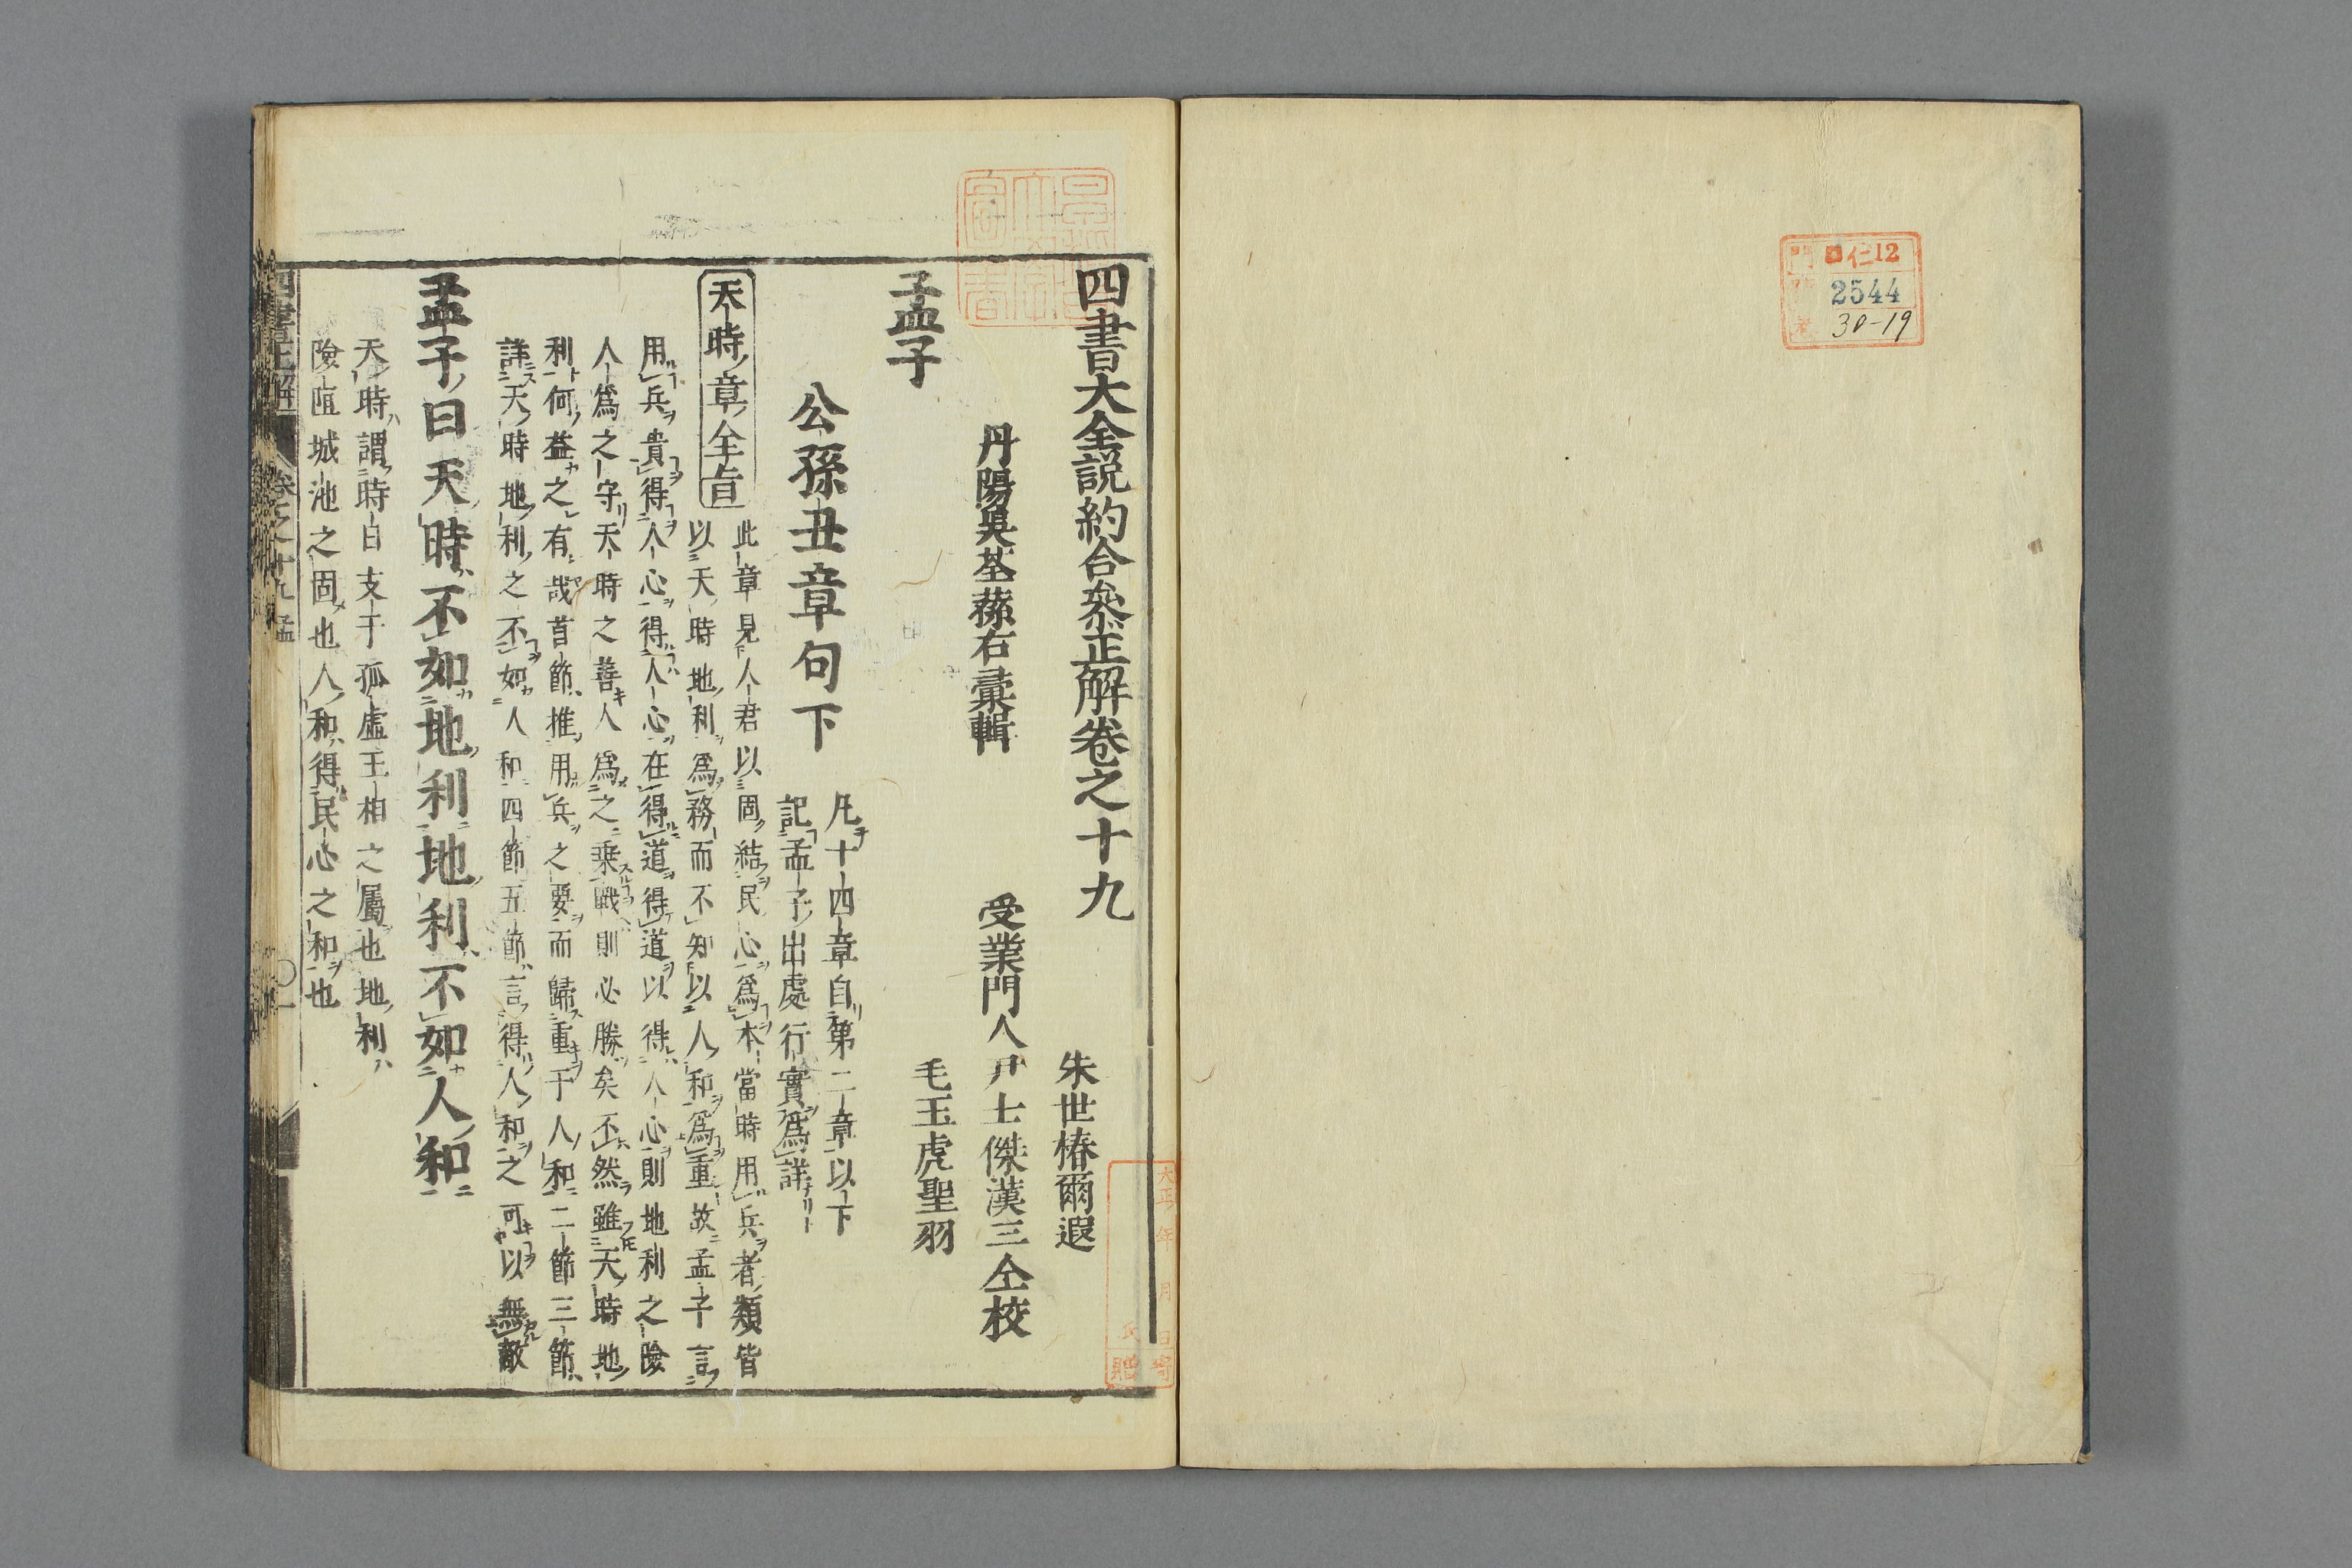 仁12
2544
30-19
四書大全説約合叅正解卷之十九
朱世椿爾遐
丹陽吳荃蓀右彙輯
受業門人尹士傑漢三仝校
毛玉虎聖羽
孟子
公孫丑章句下
凡十四章自第二章以下
記孟子出處行實爲詳
天時章全旨
此章見人君以固結民心爲本當時用兵者類皆
以天時地利爲務而不知以人和爲重故孟子言
用兵貴得人心得人心在得道得道以得人心則地利之險
人爲之守天時之善人爲之乘戰則必勝矣不然雖天時地
利何益之有哉首節推用兵之要而歸重于人和二節三節
詳天時地利之不如人和四節五節言得人和之可以無敵
孟子曰天時不如地利地利不如人和
天時謂時日支干孤虛王相之屬也地利
險阻城池之固也人和得民心之和也
四書正解
卷之十九
孟
一